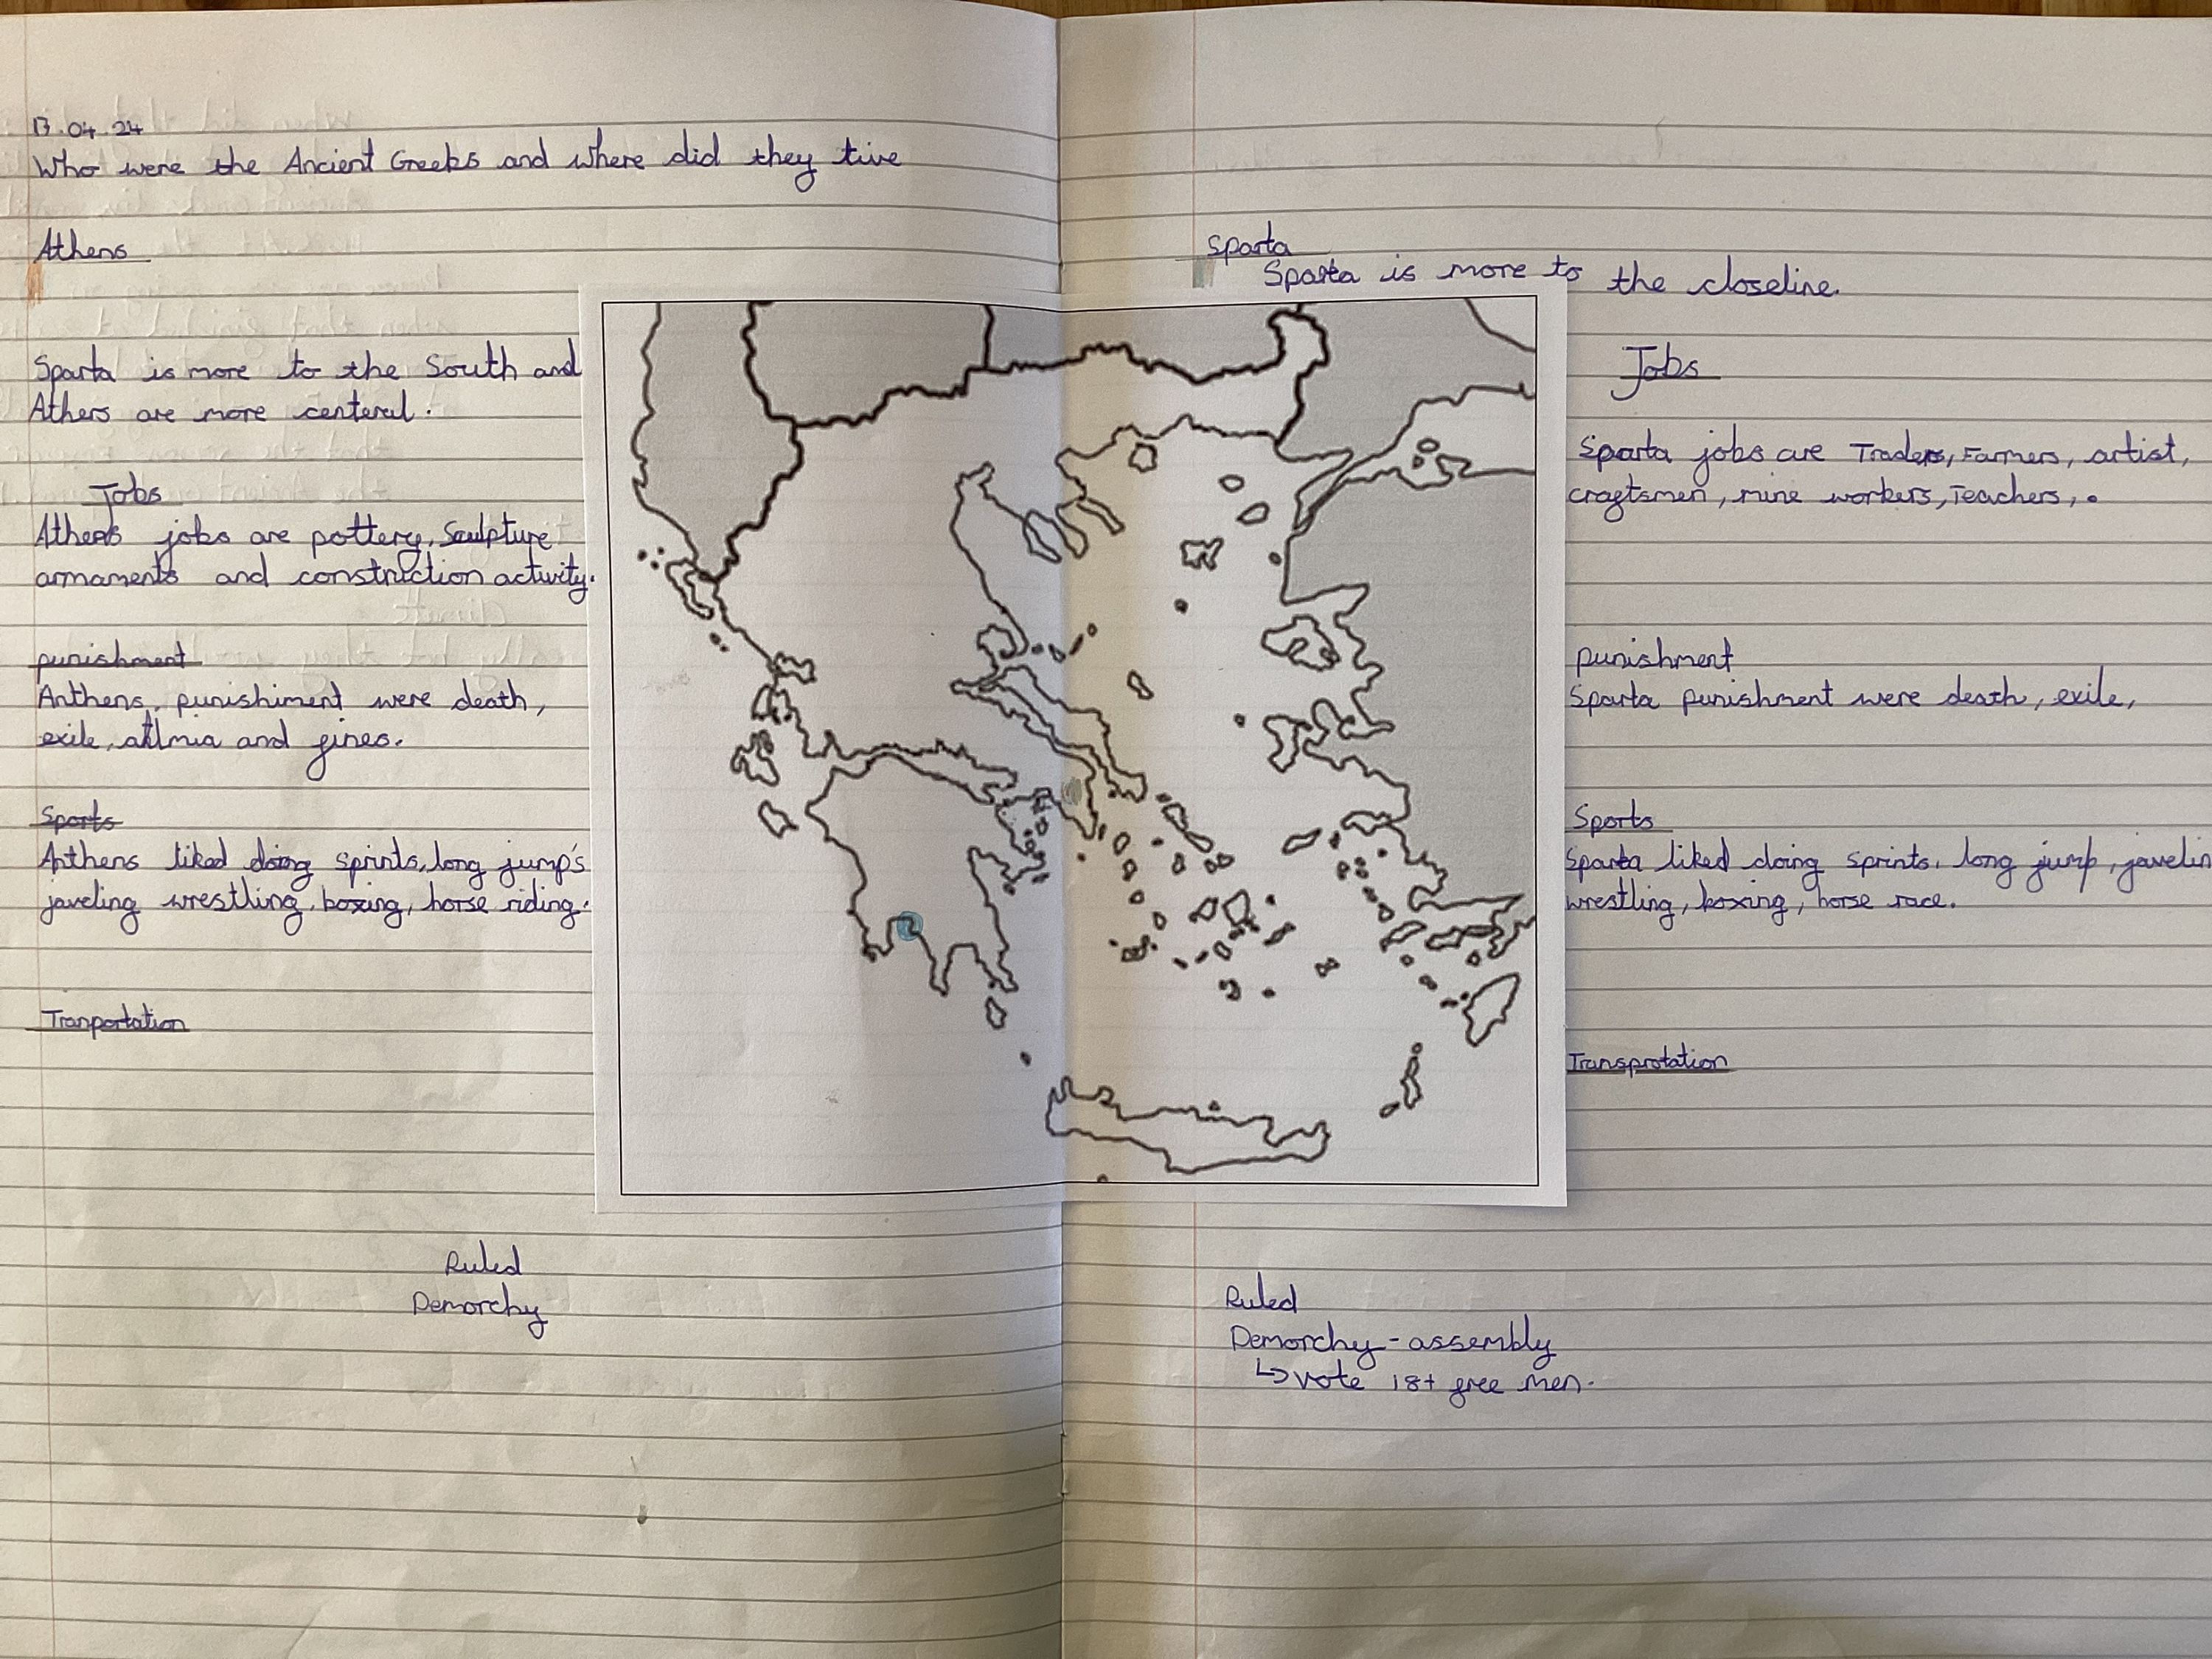 17.04.24
Who were the Ancient Greeks and where did they live
Athens
Sparta is more to the South and
Athers are more centerel.
Jobs
Athens jobs are pottery, Sculpture
armaments and construction activity.
punishment
Anthens, punishiment were death,
exile, and fines.
Sports
Anthens liked doing sprints, long jump's
javeling wrestling, boxing, horse riding.
Tranportation
Ruled
Demorchy
Sparta
Sparta is more to the closeline.
Jobs
Sparta jobs are Traders, Farmers, artist,
craftsmen, mine workers, Teachers, .
punishment
Sparta punishment were death, exile,
Sports
Sparta liked doing sprints, long jump, javelin
wrestling, boxing, horse race.
Transprotation
Ruled
Demorchy - assembly
↳ vote 18+ free men.